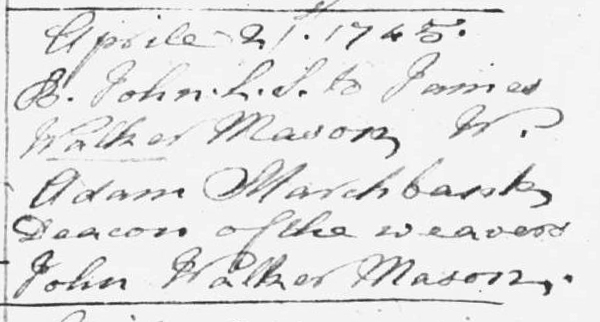 Aprile 21st. 1745.
B. John. L. S. to James
Walker Mason, W.
Adam Marchbank,
Deacon of the weavers
John Walker Mason,.